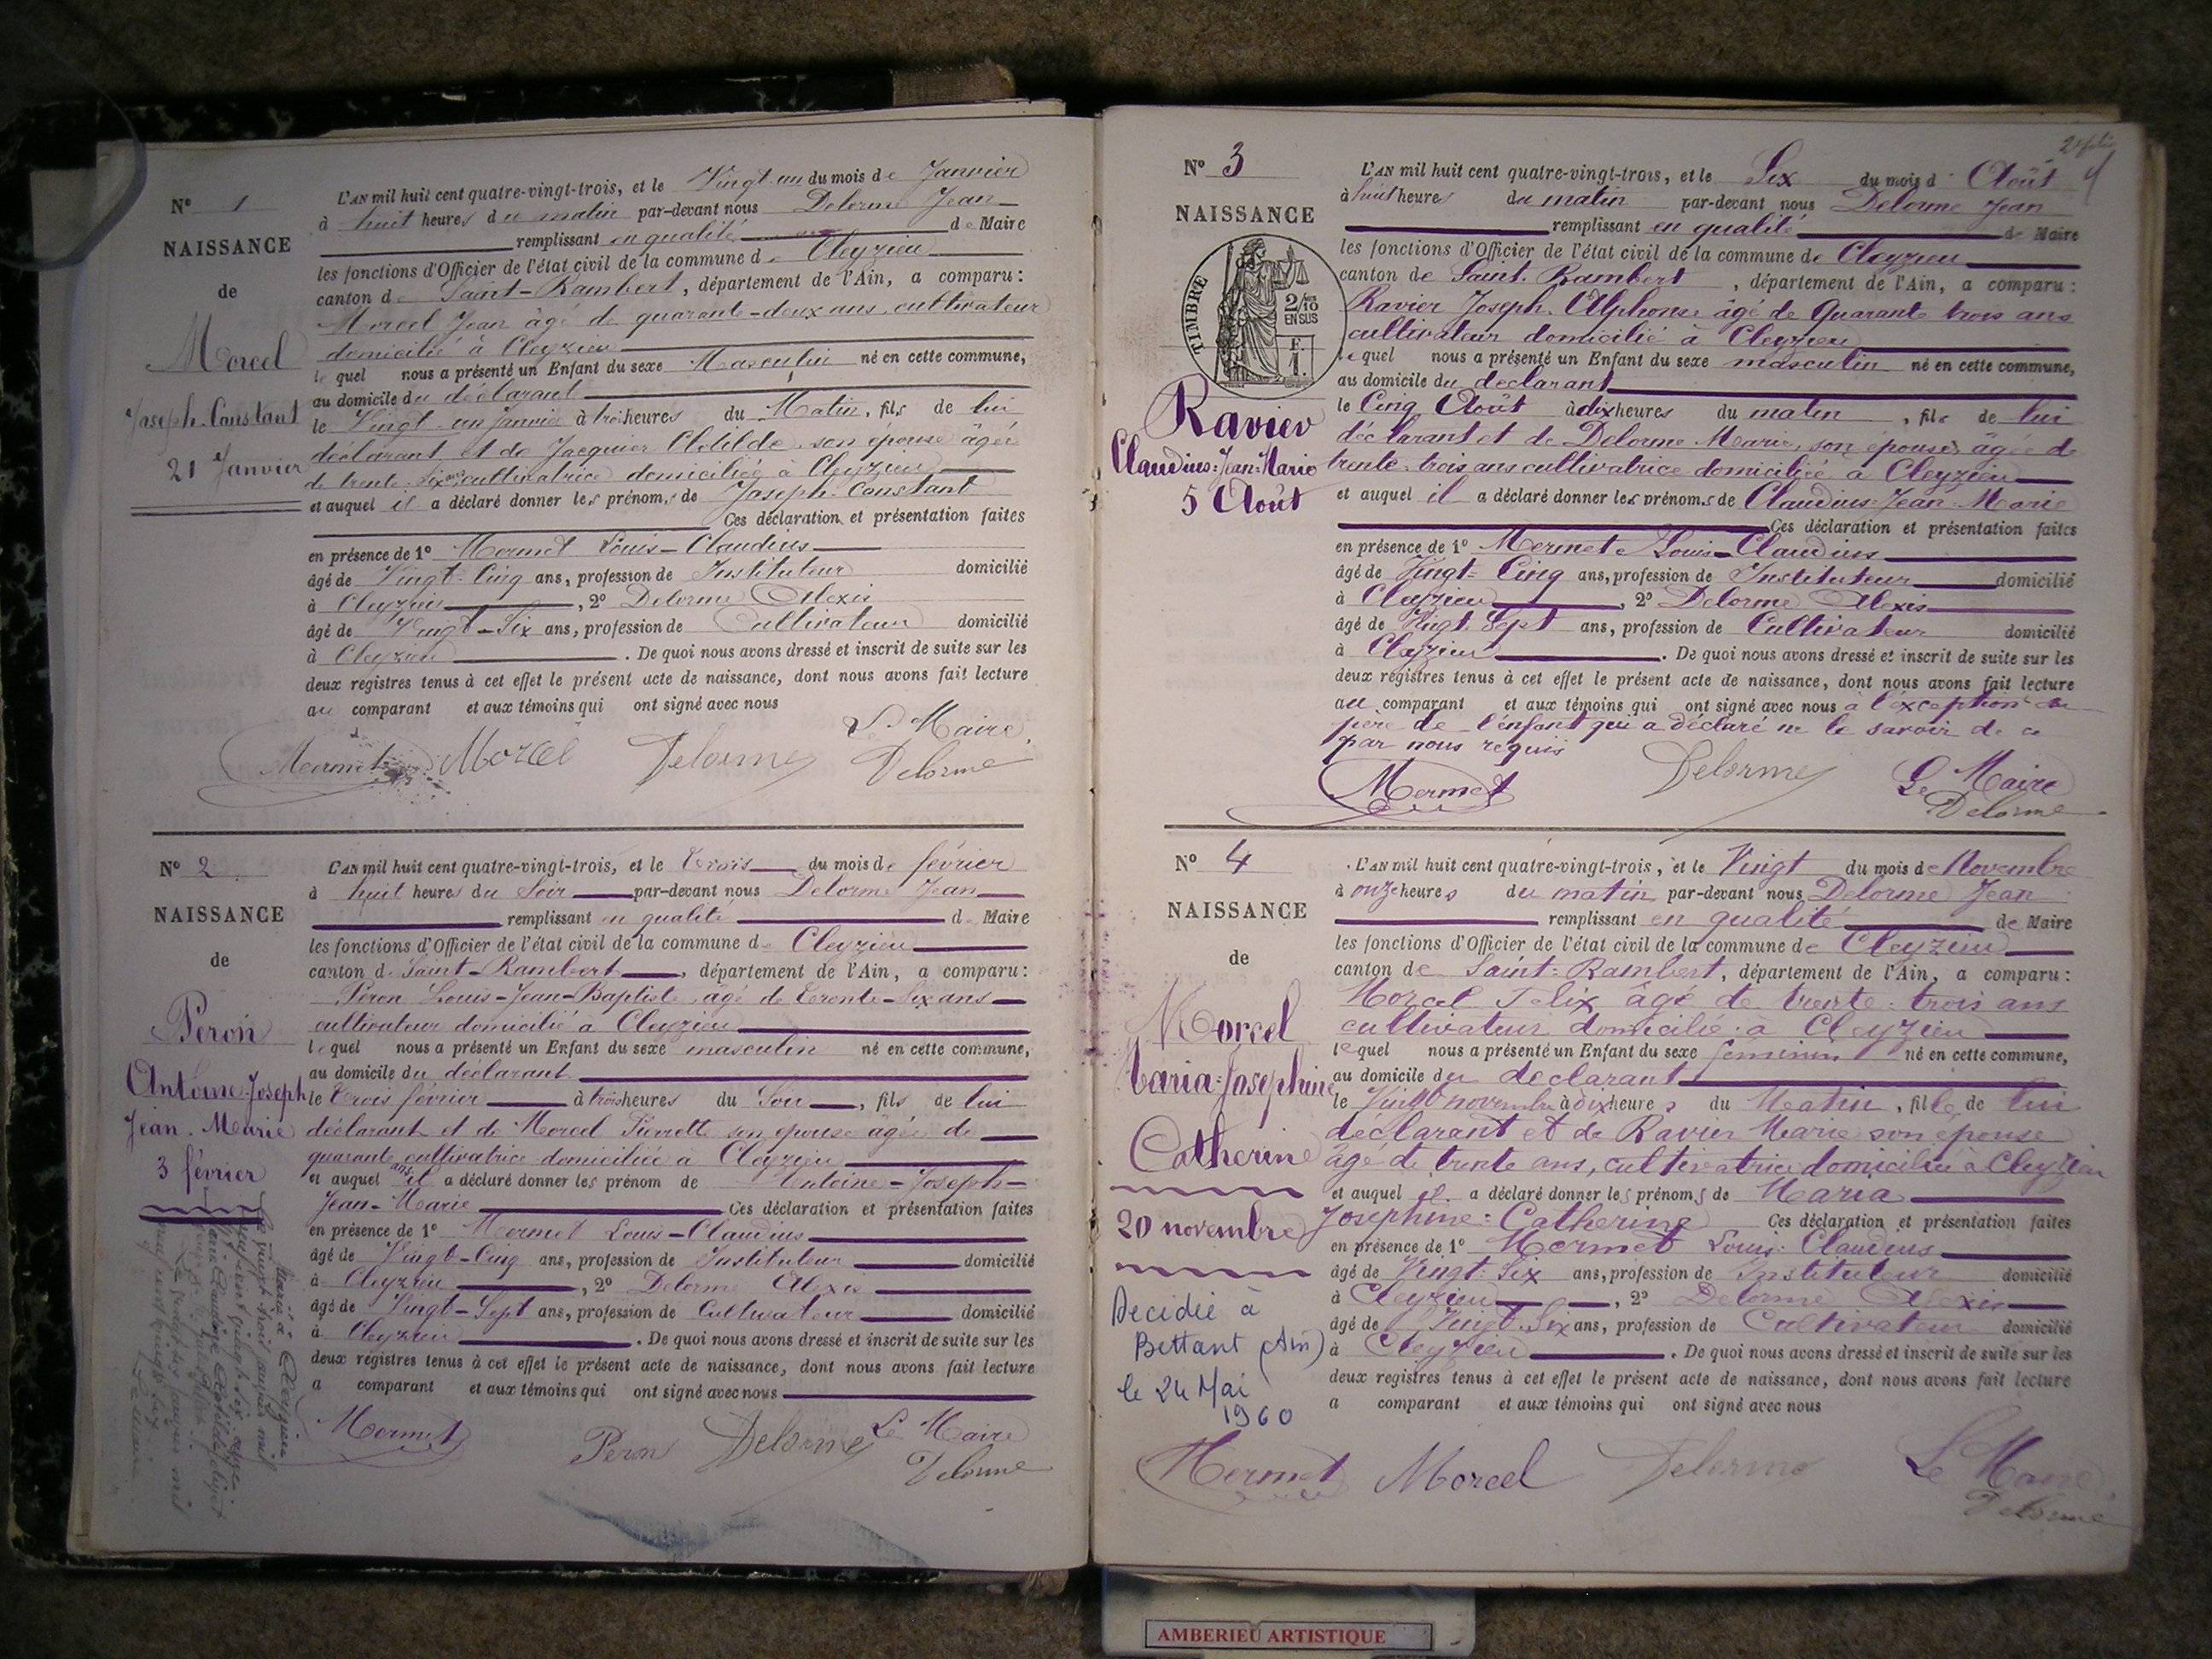 N° 1
NAISSANCE
de
Morcel
Joseph-Constant
21 Janvier
L'AN mil huit cent quatre-vingt-trois, et le Vingt-un du mois de Janvier
à huit heures du matin par-devant nous Delorme Jean
remplissant en qualité de Maire
les fonctions d'Officier de l'état civil de la commune de Cleyzieu
canton de Saint-Rambert, département de l'Ain, a comparu:
Morcel Jean âgé de quarante-deux ans, cultivateur
domicilié à Cleyzieu
lequel nous a présenté un Enfant du sexe Masculin né en cette commune,
au domicile du déclarant
le Vingt-un Janvier à trois heures du Matin, fils de lui
déclarant et de Jacquier Clotilde son épouse âgée
de trente-six ans cultivatrice domiciliée à Cleyzieu
et auquel il a déclaré donner les prénoms de Joseph-Constant
Ces déclaration et présentation faites
en présence de 1° Mermet Louis-Claudius
âgé de Vingt-Cinq ans, profession de Instituteur domicilié
à Cleyzieu, 2° Delorme Alexis
âgé de Vingt-Six ans, profession de Cultivateur domicilié
à Cleyzieu. De quoi nous avons dressé et inscrit de suite sur les
deux registres tenus à cet effet le présent acte de naissance, dont nous avons fait lecture
au comparant et aux témoins qui ont signé avec nous
Le Maire
Mermet Morcel Delorme Delorme
N° 2
NAISSANCE
de
Peron
Antoine-Joseph
Jean-Marie
3 février
L'AN mil huit cent quatre-vingt-trois, et le trois du mois de février
à huit heures du Soir par-devant nous Delorme Jean
remplissant en qualité de Maire
les fonctions d'Officier de l'état civil de la commune de Cleyzieu
canton de Saint-Rambert, département de l'Ain, a comparu:
Peron Louis-Jean-Baptiste âgé de trente-six ans
cultivateur domicilié à Cleyzieu
lequel nous a présenté un Enfant du sexe masculin né en cette commune,
au domicile du déclarant
le trois février à trois heures du Soir, fils de lui
déclarant et de Morcel Pierrette son épouse âgée de
quarante ans cultivatrice domiciliée à Cleyzieu
et auquel il a déclaré donner les prénom de Antoine-Joseph-
Jean-Marie Ces déclaration et présentation faites
en présence de 1° Mermet Louis-Claudius
âgé de Vingt-Cinq ans, profession de Instituteur domicilié
à Cleyzieu, 2° Delorme Alexis
âgé de Vingt-Sept ans, profession de Cultivateur domicilié
à Cleyzieu. De quoi nous avons dressé et inscrit de suite sur les
deux registres tenus à cet effet le présent acte de naissance, dont nous avons fait lecture
a comparant et aux témoins qui ont signé avec nous
Mermet Peron Delorme Le Maire
Delorme
Marié à
N° 3
NAISSANCE
TIMBRE
2/10
EN SUS
F.
1.
Ravier
Claudius-Jean-Marie
5 Août
L'AN mil huit cent quatre-vingt-trois, et le Six du mois d'Août
à huit heures du matin par-devant nous Delorme Jean
remplissant en qualité de Maire
les fonctions d'Officier de l'état civil de la commune de Cleyzieu
canton de Saint-Rambert, département de l'Ain, a comparu:
Ravier Joseph-Alphonse âgé de Quarante trois ans
cultivateur domicilié à Cleyzieu
lequel nous a présenté un Enfant du sexe masculin né en cette commune,
au domicile du déclarant
le Cinq Août à dix heures du matin, fils de lui
déclarant et de Delorme Marie, son épouse, âgée de
trente-trois ans cultivatrice domiciliée à Cleyzieu
et auquel il a déclaré donner les prénoms de Claudius-Jean-Marie
Ces déclaration et présentation faites
en présence de 1° Mermet Louis-Claudius
âgé de Vingt-Cinq ans, profession de Instituteur domicilié
à Cleyzieu, 2° Delorme Alexis
âgé de Vingt-Sept ans, profession de Cultivateur domicilié
à Cleyzieu. De quoi nous avons dressé et inscrit de suite sur les
deux registres tenus à cet effet le présent acte de naissance, dont nous avons fait lecture
au comparant et aux témoins qui ont signé avec nous à l'exception du
père de l'enfant qui a déclaré ne le savoir de ce
par nous requis
Mermet Delorme Le Maire
Delorme
N° 4
NAISSANCE
de
Morcel
Maria-Josephine
Catherine
20 novembre
Decidée à
Bettant (Ain)
le 24 Mai
1960
L'AN mil huit cent quatre-vingt-trois, et le Vingt du mois de Novembre
à onze heures du matin par-devant nous Delorme Jean
remplissant en qualité de Maire
les fonctions d'Officier de l'état civil de la commune de Cleyzieu
canton de Saint-Rambert, département de l'Ain, a comparu:
Morcel Felix âgé de trente-trois ans
cultivateur domicilié à Cleyzieu
lequel nous a présenté un Enfant du sexe feminin né en cette commune,
au domicile du declarant
le Vingt novembre à dix heures du Matin, fille de lui
déclarant et de Ravier Marie son épouse
âgé de trente ans, cultivatrice domiciliée à Cleyzieu
et auquel il a déclaré donner les prénoms de Maria
Josephine-Catherine Ces déclaration et présentation faites
en présence de 1° Mermet Louis-Claudius
âgé de Vingt-Six ans, profession de Instituteur domicilié
à Cleyzieu, 2° Delorme Alexis
âgé de Vingt-Six ans, profession de Cultivateur domicilié
à Cleyzieu. De quoi nous avons dressé et inscrit de suite sur les
deux registres tenus à cet effet le présent acte de naissance, dont nous avons fait lecture
a comparant et aux témoins qui ont signé avec nous
Mermet Morcel Delorme Le Maire
Delorme
AMBERIEU ARTISTIQUE